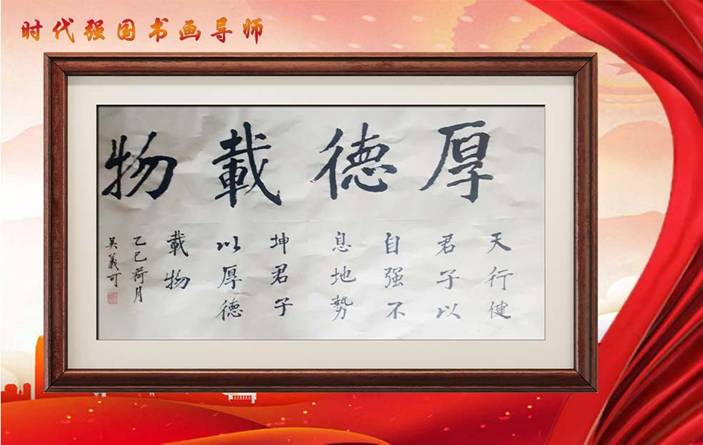 时代强国书画导师
厚德載物
天行健
君子以
自强不
息地势
坤君子
以厚德
載物
乙巳荷月
吴義可